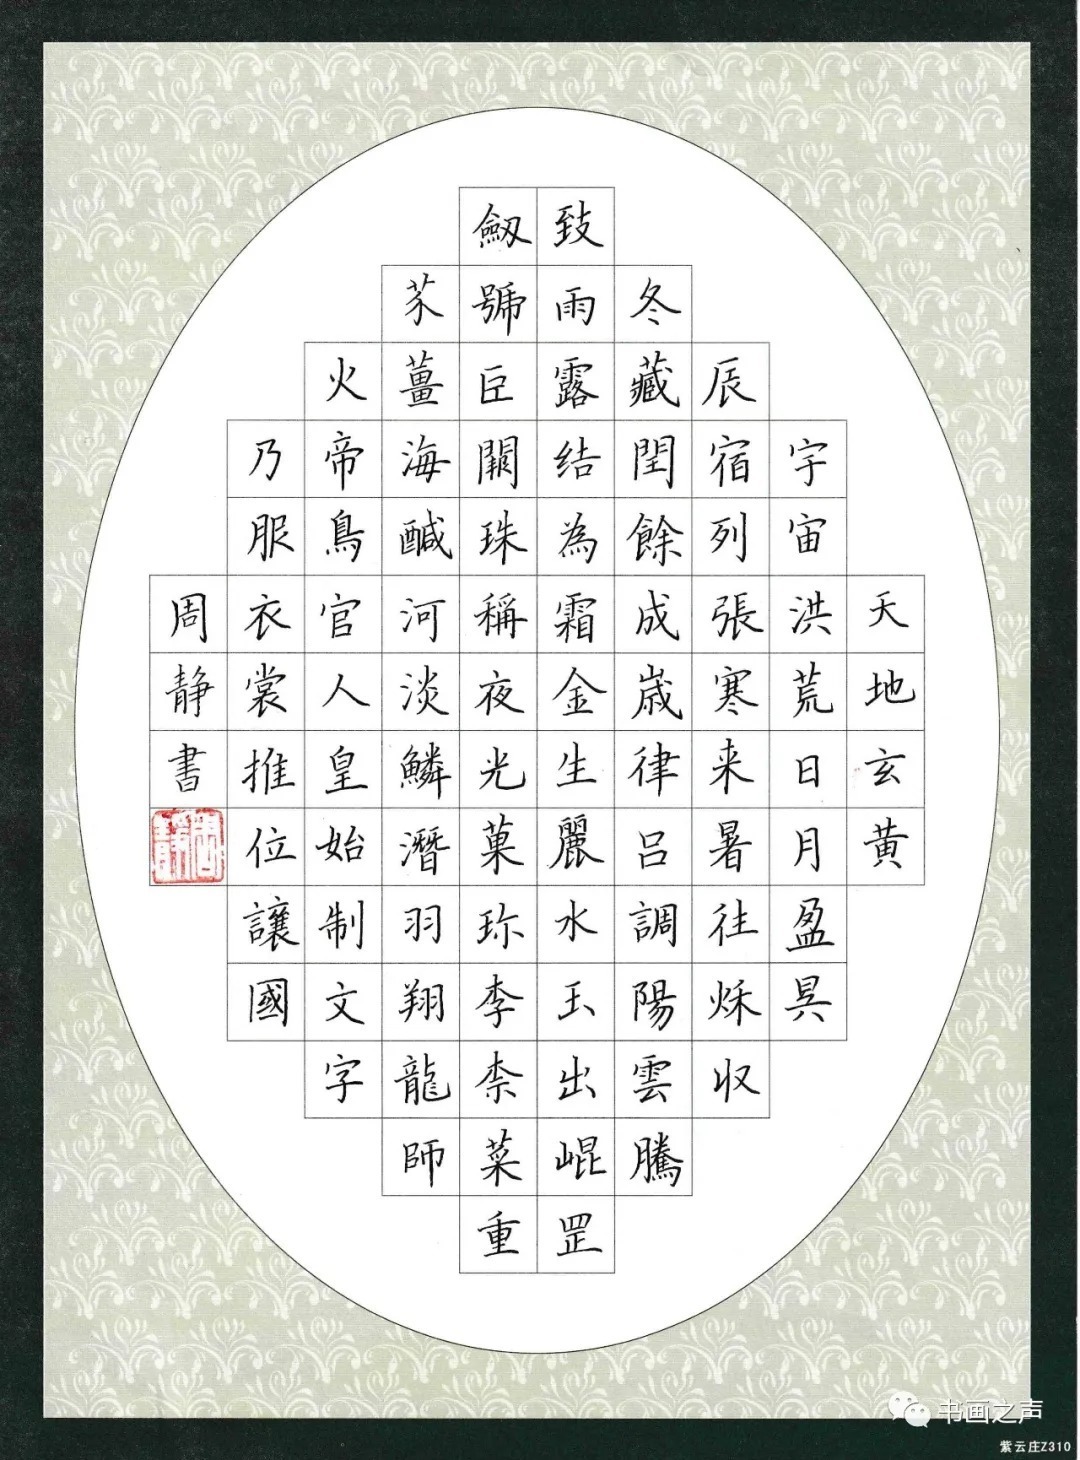 天地玄黄
宇宙洪荒日月盈昃
辰宿列張寒来暑往秌収
冬藏閏餘成歳律吕調陽雲騰
致雨露结為霜金生麗水玉出崐罡
劔號巨闕珠稱夜光菓珎李柰菜重
芥薑海醎河淡鱗潛羽翔龍師
火帝鳥官人皇始制文字
乃服衣裳推位讓國
周静書
书画之声
紫云庄Z310